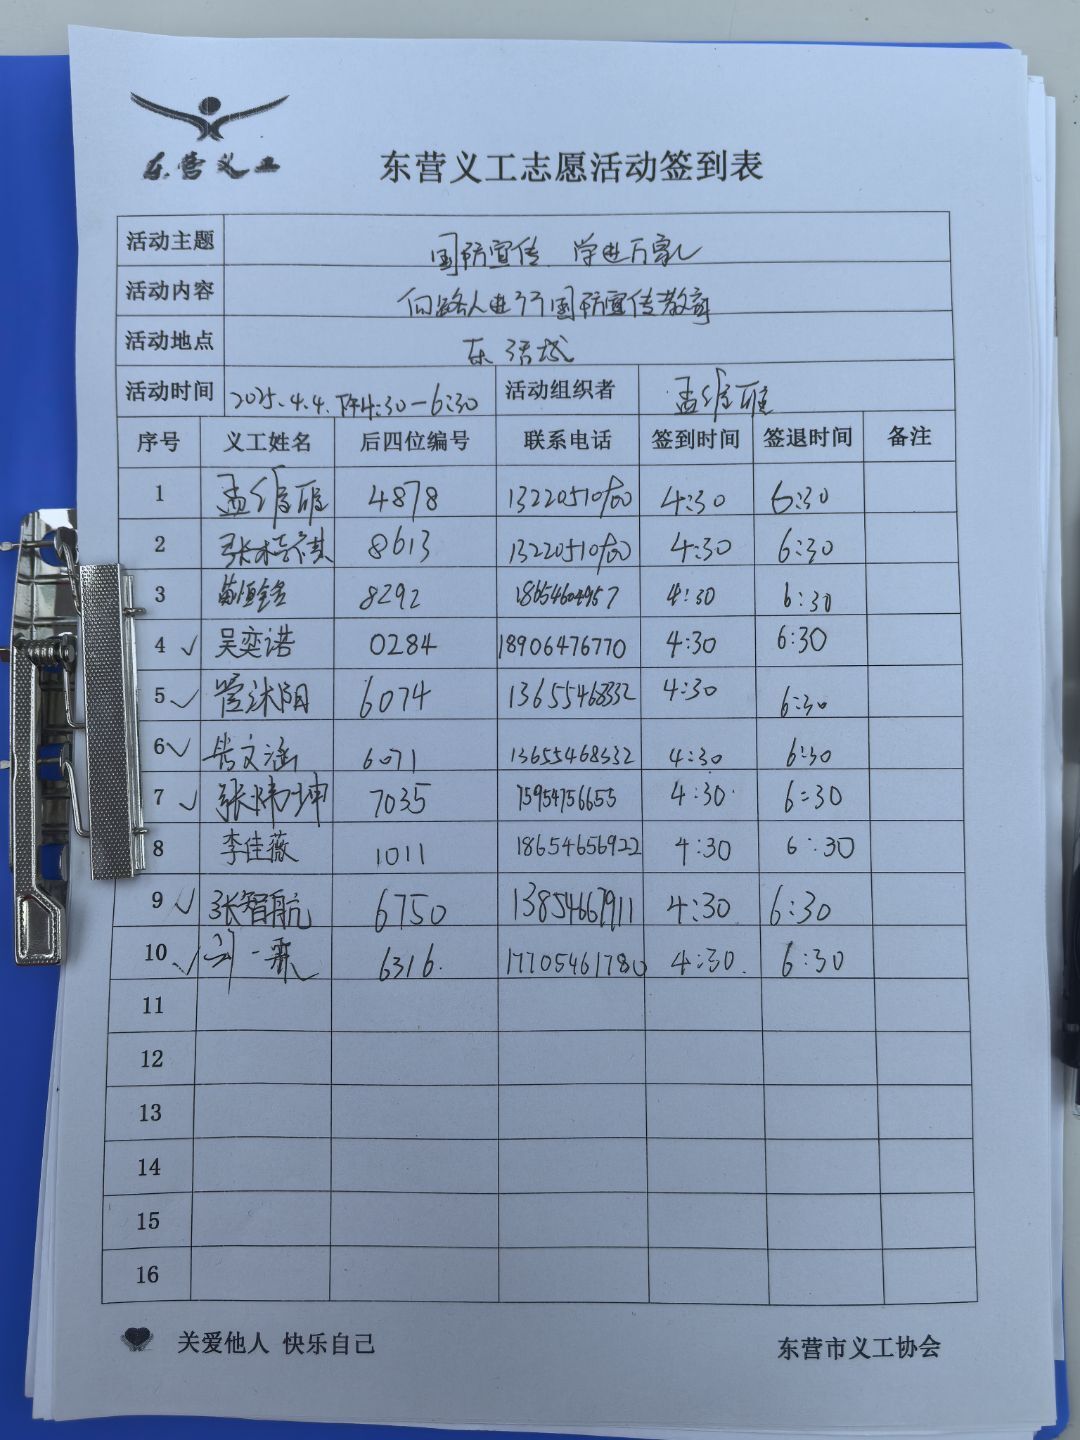 东营义工
东营义工志愿活动签到表
活动主题 国防宣传 学进万家
活动内容 向路人进行国防宣传教育
活动地点 东
活动时间 2025.4.4.下午4:30-6:30 活动组织者 孟维雅
序号 义工姓名 后四位编号 联系电话 签到时间 签退时间 备注
1 孟维雅 4878 4:30 6:30
2 8613 4:30 6:30
3 8292 4:30 6:30
4 ✓ 吴奕诺 0284 18906476770 4:30 6:30
5 ✓ 管沐阳 6074 13655468332 4:30 6:30
6 ✓ 文涵 6071 13655468332 4:30 6:30
7 ✓ 张炜坤 7035 15954756655 4:30 6:30
8 李佳薇 1011 18654656922 4:30 6:30
9 ✓ 张智航 6750 13854667911 4:30 6:30
10 ✓ 6316. 17705461780 4:30. 6:30
11
12
13
14
15
16
关爱他人 快乐自己
东营市义工协会